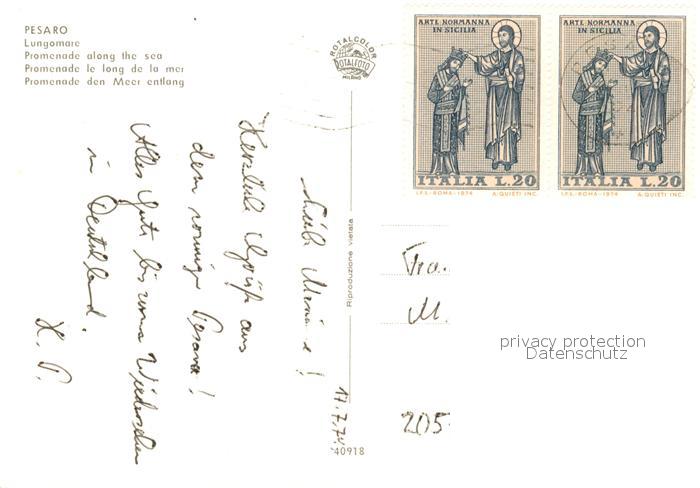 PESARO
Lungomare
Promenade along the sea
Promenade le long de la mer
Promenade den Meer entlang
ROTALCOLOR
ROTALFOTO
MILANO
ARTE NORMANNA
IN SICILIA
ITALIA L.20
I.P.S.-ROMA-1974 A. QUIETI INC.
ARTE NORMANNA
IN SICILIA
ITALIA L.20
I.P.S.-ROMA-1974 A. QUIETI INC.
Riproduzione vietata
17.7.74
Herzliche Grüße aus
dem sonnigen Pesaro!
Alles Gute bis zum Wiedersehen
in Deutschland.
H. P.
Fra.
M.
205
40918
privacy protection
Datenschutz